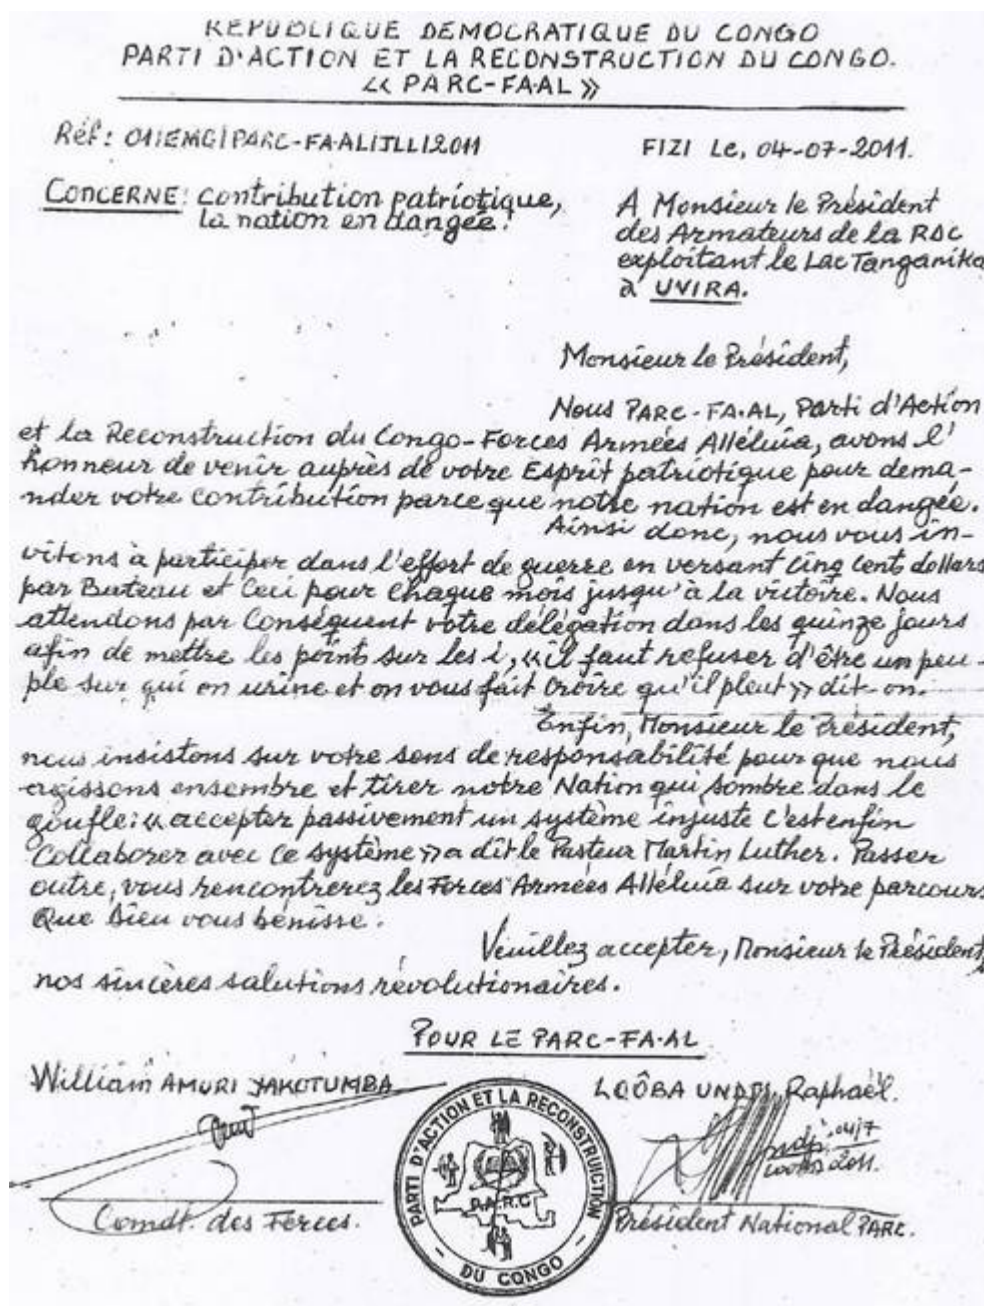 REPUBLIQUE DEMOCRATIQUE DU CONGO
PARTI D'ACTION ET LA RECONSTRUCTION DU CONGO.
« PARC-FA.AL »
Réf: 011EMG/PARC-FA-AL/JLL/2011
FIZI Le, 04-07-2011.
CONCERNE: contribution patriotique,
la nation en dangée.
A Monsieur le Président
des Armateurs de la RDC
exploitant le Lac Tanganika
à UVIRA.
Monsieur le Président,
Nous PARC-FA.AL, Parti d'Action
et la Reconstruction du Congo-Forces Armées Alléluia, avons l'
honneur de venir auprès de votre Esprit patriotique pour dema-
nder votre contribution parce que notre nation est en dangée.
Ainsi donc, nous vous in-
vitons à participer dans l'effort de guerre en versant Cinq Cents dollars
par Bateau et Ceci pour Chaque mois jusqu'à la victoire. Nous
attendons par Conséquent votre délégation dans les quinze jours
afin de mettre les points sur les i, «il faut refuser d'être un peu-
ple sur qui on urine et on vous fait Croire qu'il pleut» dit-on.
Enfin, Monsieur le Président,
nous insistons sur votre sens de responsabilité pour que nous
agissons ensembre et tirer notre Nation qui sombre dans le
goufle: «accepter passivement un système injuste C'est enfin
Collaborer avec Ce système» a dit le Pasteur Martin Luther. Passer
outre, vous rencontrerez les Forces Armées Alléluia sur votre parcours
Que Dieu vous bénisse.
Veuillez accepter, Monsieur le Président,
nos sincères salutions révolutionaires.
POUR LE PARC-FA.AL
William AMURI YAKOTUMBA
LOÔBA UNDJI, Raphaël.
04/7
2011.
Comdt. des Forces.
Président National PARC.
PARTI D'ACTION ET LA RECONSTRUICTION
P.A.R.C
DU CONGO